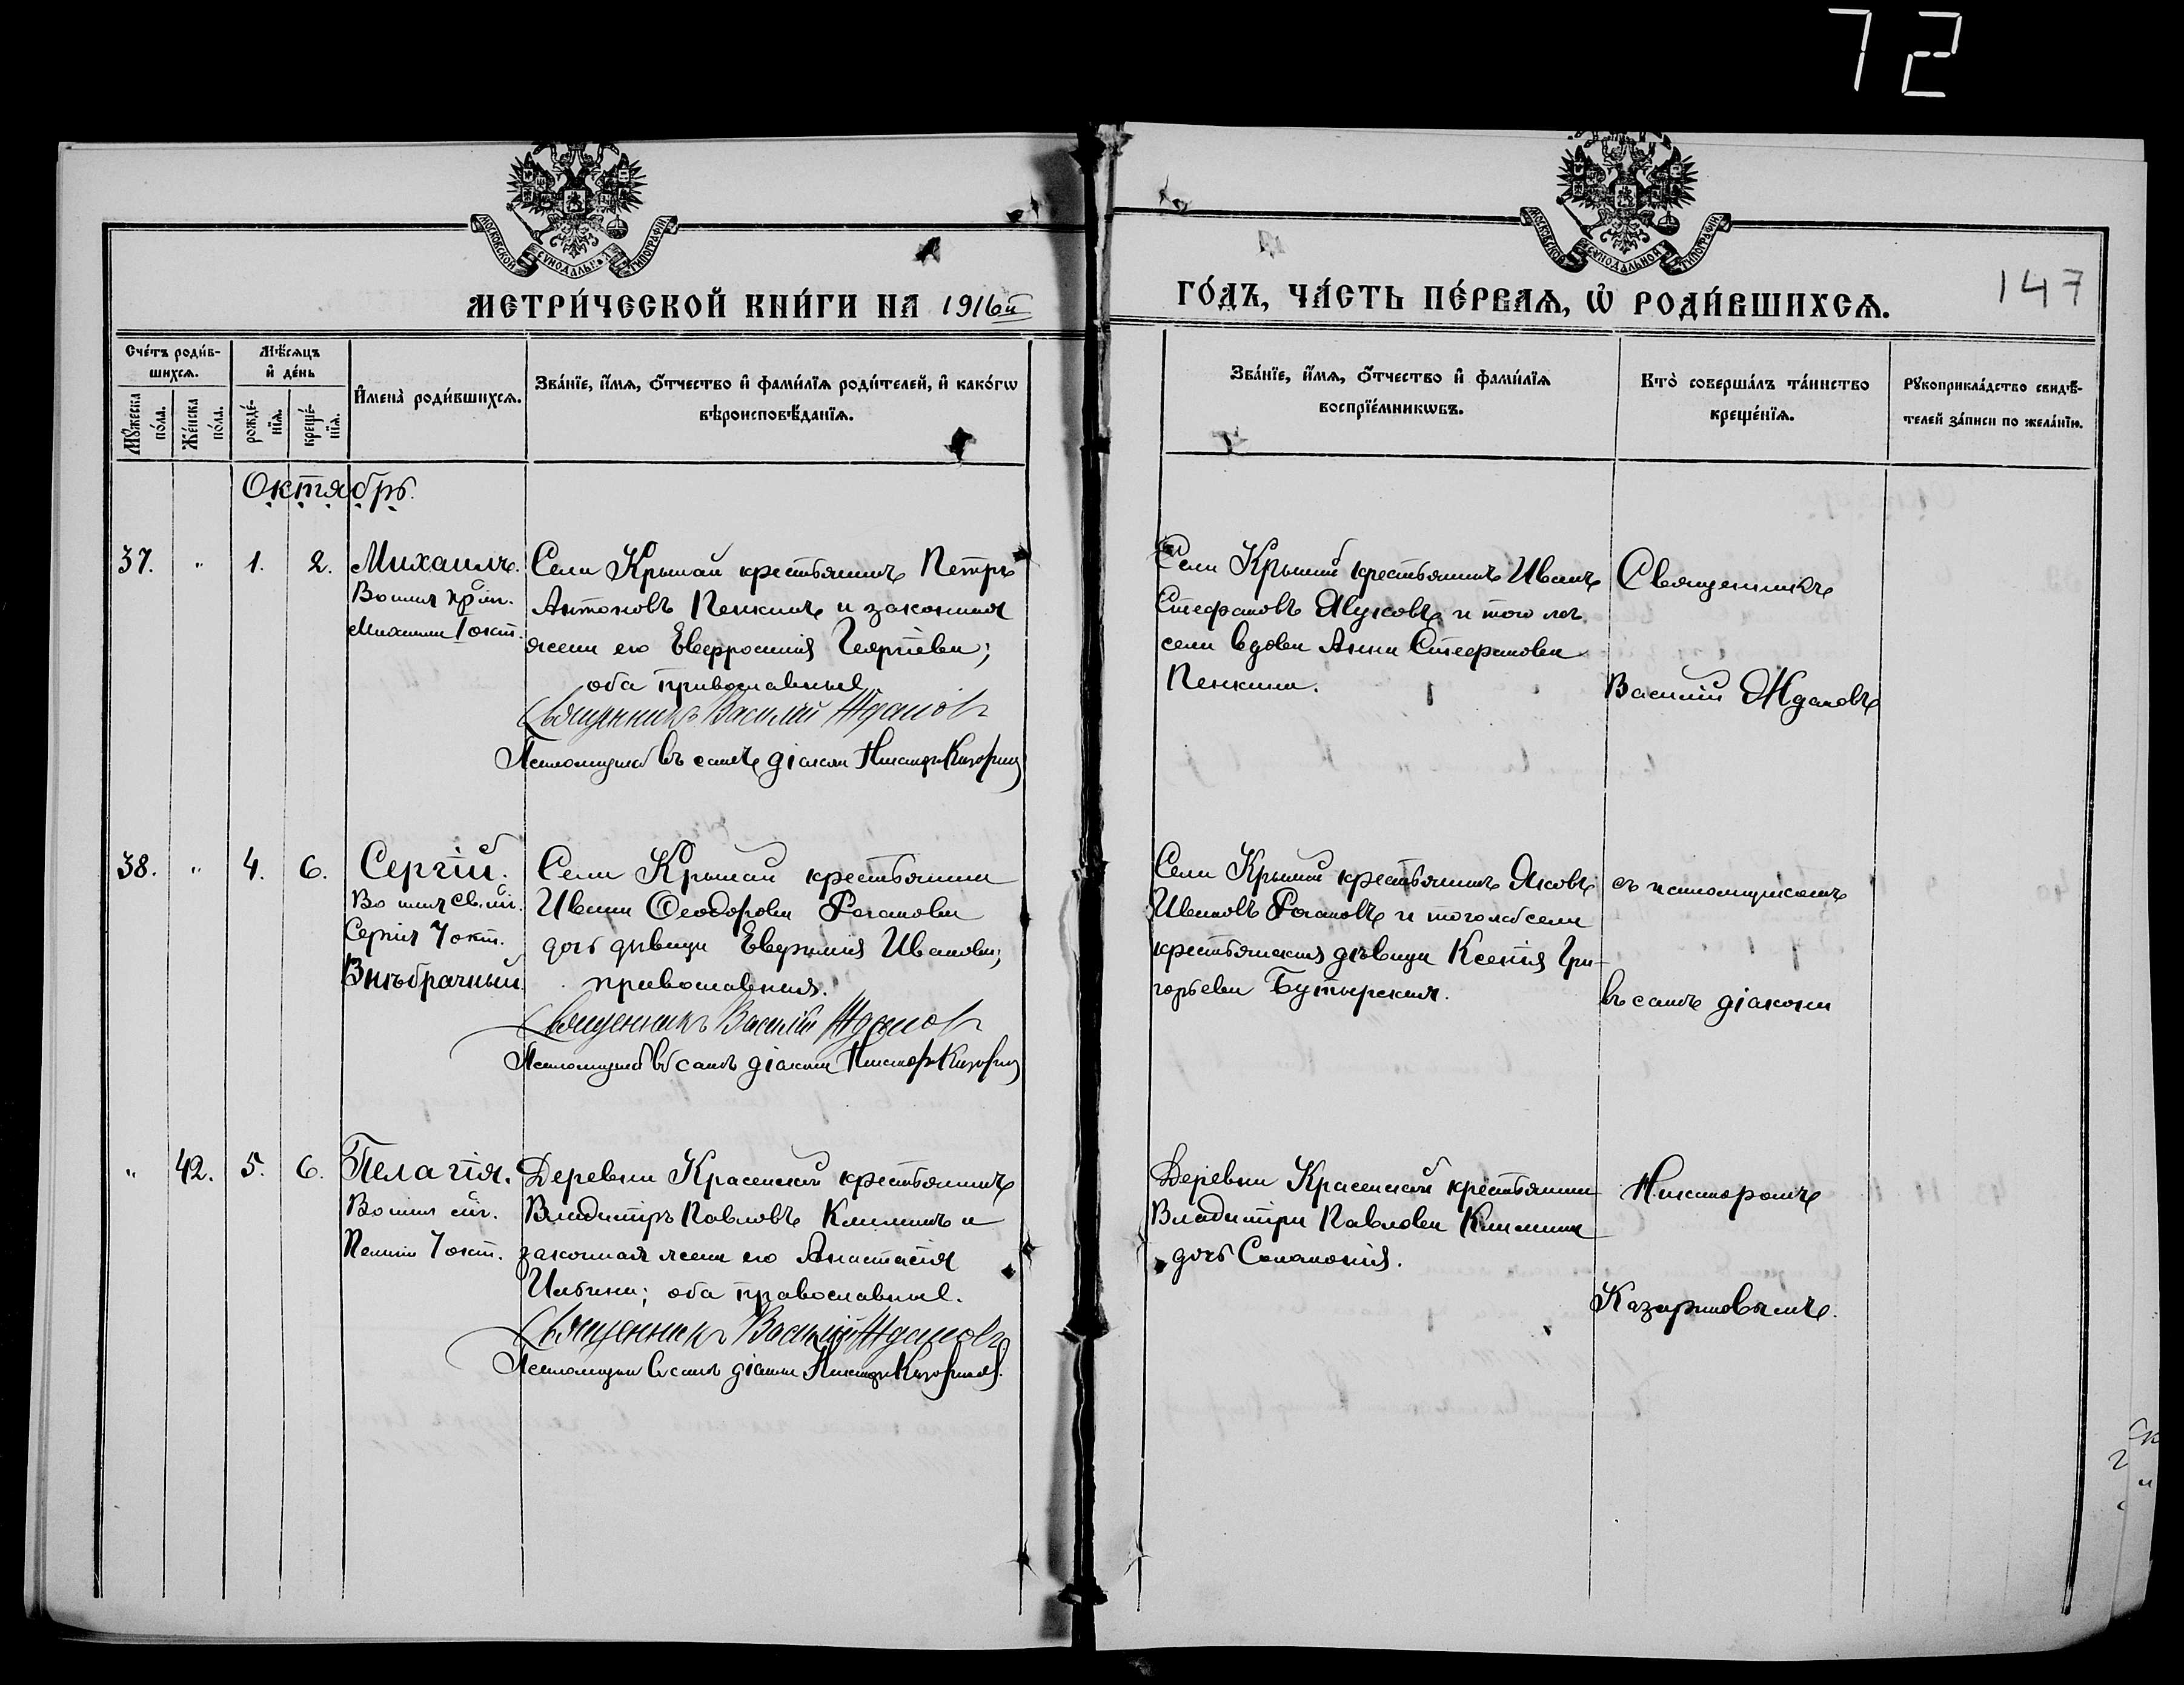 72
МОСКОВСКОЙ СѴНОДАЛЬНОЙ ТИПОГРАФІИ
МОСКОВСКОЙ СѴНОДАЛЬНОЙ ТИПОГРАФІИ
МЕТРИ́ЧЕСКОЙ КНИ́ГИ НА 1916ой
ГО́ДЪ, ЧА́СТЬ ПЕ́РВАѦ, Ѡ҆ РОДИ́ВШИХСѦ.
147
Сче́тъ роди́в-
шихсѧ.
Мꙋ́жеска по́ла.
Же́нска по́ла.
Мѣ́сѧцъ
и҆ де́нь
рожде́-
нїѧ.
креще́-
нїѧ.
И҆мена̀ роди́вшихсѧ.
Зва́нїе, и҆́мѧ, ѻ҆́тчество и҆ фами́лїѧ роди́телей, и҆ како́гѡ
вѣроисповѣ́данїѧ.
Зва́нїе, и҆́мѧ, ѻ҆́тчество и҆ фами́лїѧ
воспрїе́мникѡвъ.
Кто̀ соверша́лъ та́инство
креще́нїѧ.
Рꙋкоприкла́дство свидѣ́-
телей за́писи по жела́нїю.
Октябрь.
37. " 1. 2. Михаилъ.
Михаила 1 окт.
Села Крымай крестьянинъ Петръ
Антоновъ Пенкинъ и законная
жена его Евфросинія Георгіева;
оба православные
Священникъ Василій Ждановъ
Псаломщикъ въ санѣ діакона
Села Крымай крестьянинъ Иванъ
Стефановъ и того же
села вдова Анна Стефанова
Пенкина.
Священникъ
Василій Ждановъ
38. " 4. 6. Сергій.
Сергія 7 окт.
Внѣбрачный
Села Крымай крестьянина
Ивана Ѳеодорова Роганова
дочь дѣвица Евфимія Иванова;
православная.
Священникъ Василій Ждановъ
Псаломщикъ въ санѣ діакона
Села Крымай крестьянинъ Яковъ
Ивановъ Рогановъ и того же села
крестьянская дѣвица Ксенія Гри-
горьева Бутырская.
съ псаломщикомъ
въ санѣ діакона
" 42. 5. 6. Пелагія.
Пелагіи 7 окт.
Деревни Красенской крестьянинъ
Владиміръ Павловъ Климинъ и
законная жена его Анастасія
Ильина; оба православные.
Священникъ Василій Ждановъ
Псаломщикъ въ санѣ діакона
Деревни Красенской крестьянина
Владиміра Павлова Климина
дочь Соломонія.
Никаноромъ
Казариновымъ.